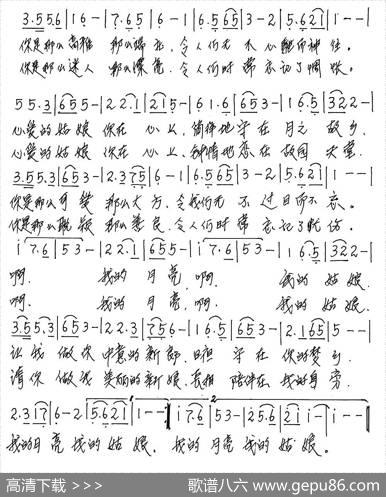 3.5 5.6 | 1 6 - | 7.6 5 | 6 - 1 | 6.5 6 5 | 3 - 2 | 5.6 2 1 | 1 - - |
你是那么高雅 那么端庄, 令人们无不心醉而神往。
你是那么迷人 那么漂亮, 令人们时常忘记了惆怅。
5 5.3 | 6 5 5 - | 2 2.1 | 2 1 5 - | 6 1.6 | 6 5 3 - | 1 6.5 | 3 2 2 - |
心爱的姑娘 你在心上, 守在月之故乡。
心爱的姑娘 你在心上, 钟情地 在故园天堂。
3.5 5.3 | 6 5 3 - | 2.3 7 5 | 6 - 1 | 6.5 6 5 | 3 - 2 | 5.6 2 1 | 1 - -
你是那么可爱 那么大方, 令我们无不过目而不忘。
你是那么 那么善良, 令人们时常忘记了忧伤。
i 7.6 | 5 3 - | 2 2.1 | 6 5 5 - | i 7.6 | 5 3 - | 1 6.5 | 3 2 2 - |
啊, 我的月亮, 啊, 我的姑娘,
啊, 我的月亮, 啊, 我的姑娘,
3.5 5.3 | 6 5 3 - | 2 2.3 | 7 5 6 - | 1 6.5 | 6 5 3 - | 2.1 6 5 | 5 - - |
让我做你中意的新郎, 日夜守在你的梦乡。
请你做我美丽的新娘, 陪伴在我的身旁。
2.3 1 7 | 6 - 2 | 5.6 2 1 | 1 - - | i 7.6 | 5 3 - | 2 5.6 | 2 1 i - | i - - |
我的月亮我的姑娘, 我的月亮我的姑娘。
高清下载 >>>
歌谱八六 www.gepu86.com